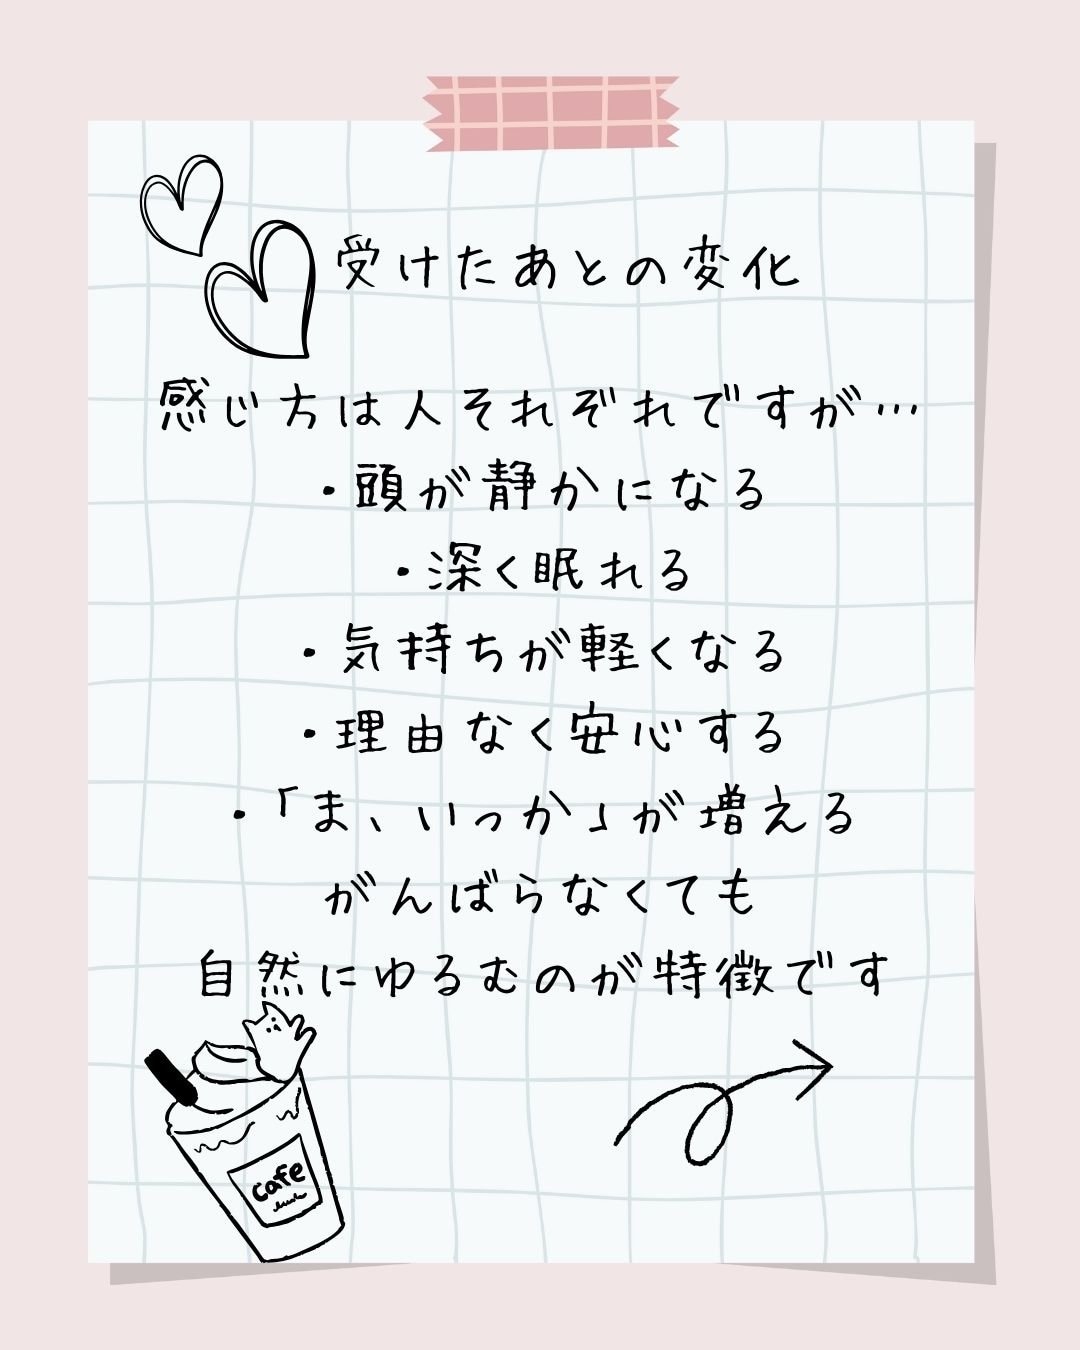 受けたあとの変化
感じ方は人それぞれですが…
・頭が静かになる
・深く眠れる
・気持ちが軽くなる
・理由なく安心する
・「ま、いっか」が増える
がんばらなくても
自然にゆるむのが特徴です
cafe